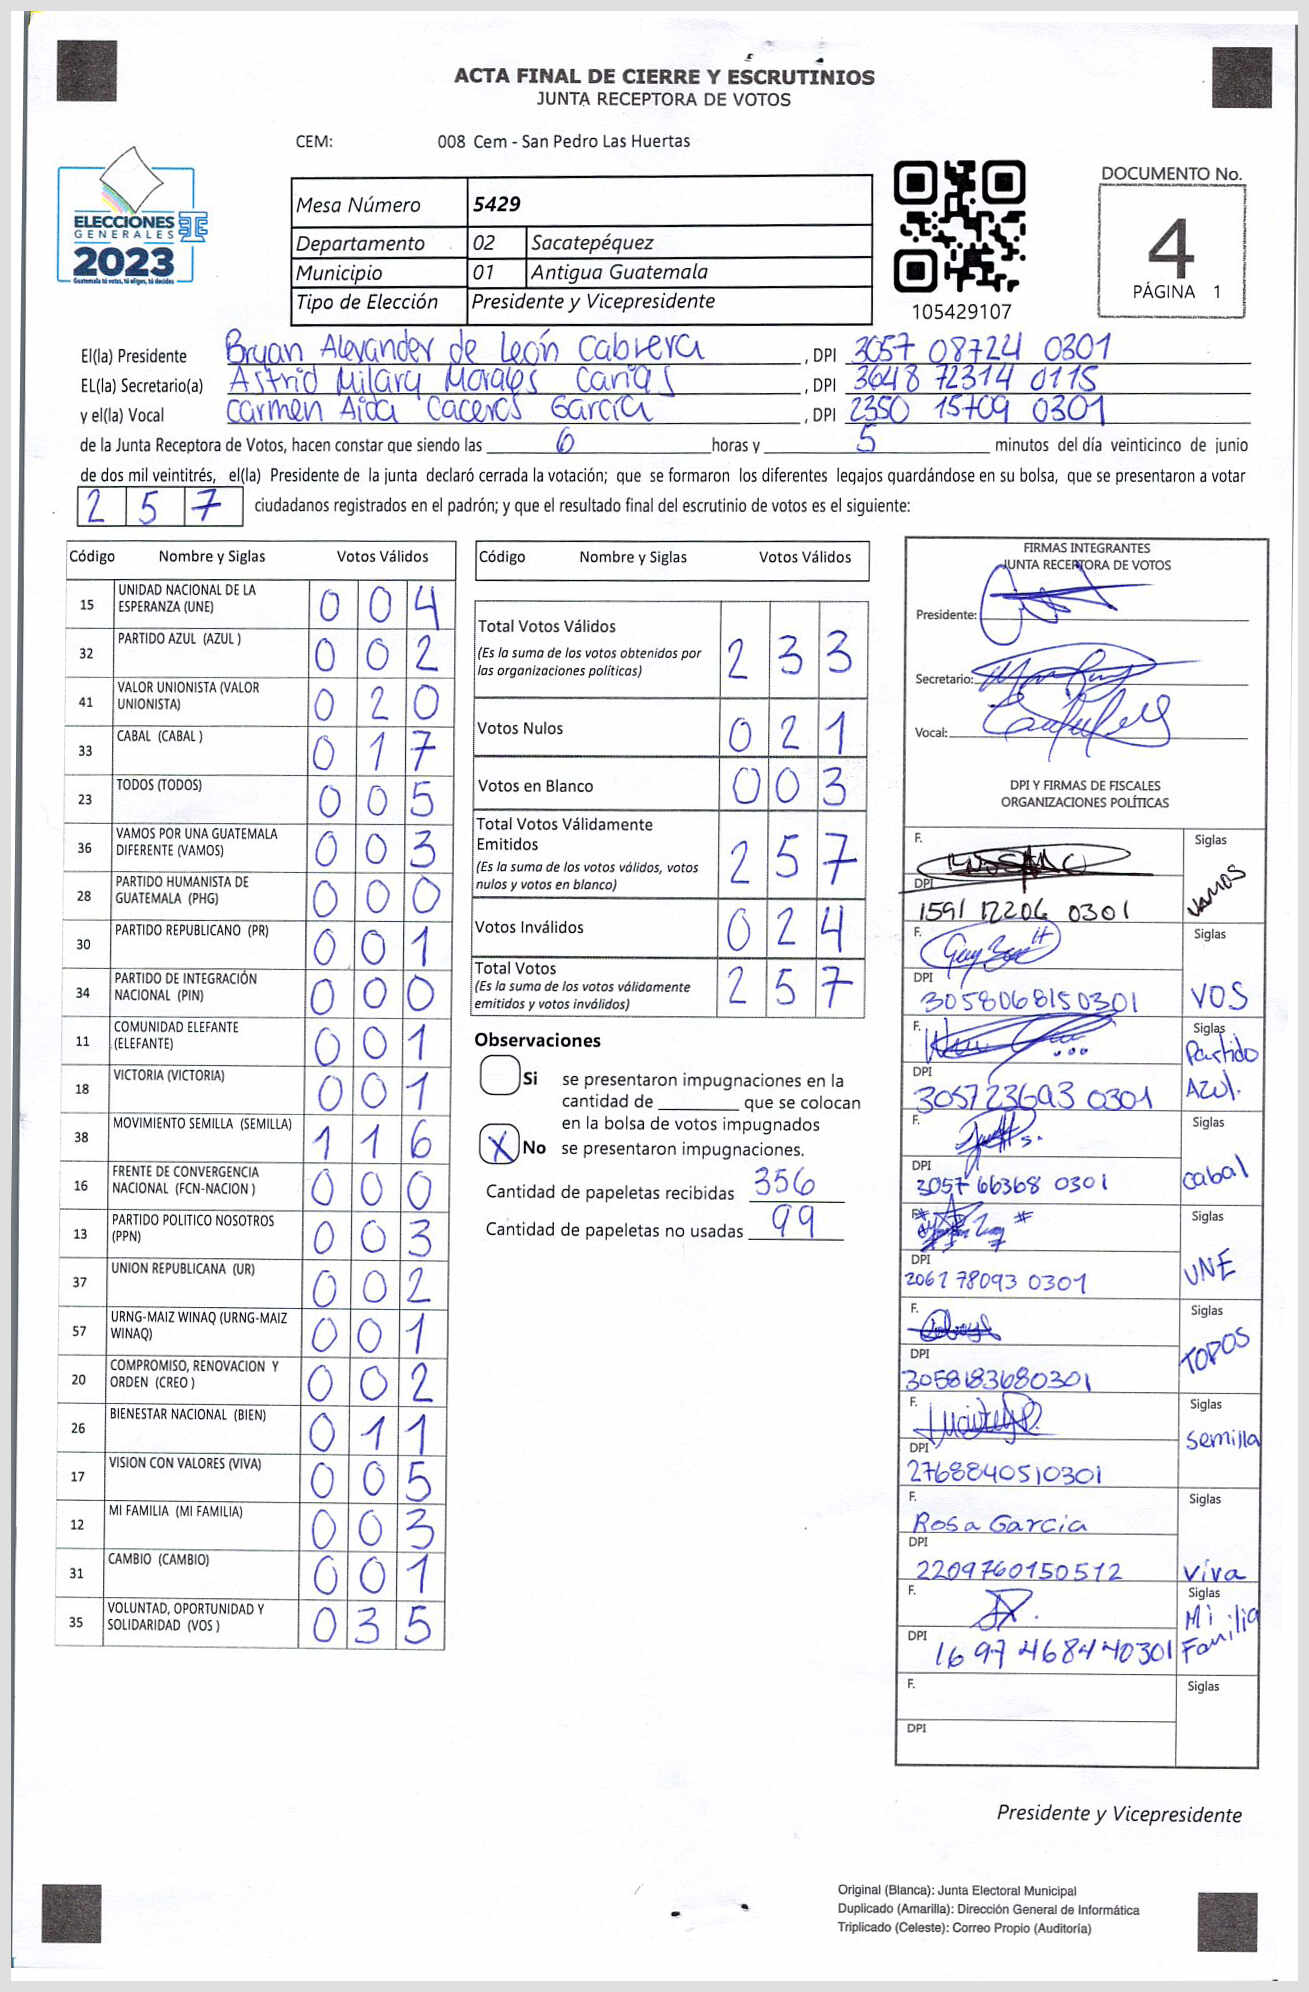 ACTA FINAL DE CIERRE Y ESCRUTINIOS
JUNTA RECEPTORA DE VOTOS
CEM: 008 Cem - San Pedro Las Huertas
ELECCIONES
GENERALES
2023
Guatemala tú votas, tú eliges, tú decides
Mesa Número 5429
Departamento 02 Sacatepéquez
Municipio 01 Antigua Guatemala
Tipo de Elección Presidente y Vicepresidente
105429107
DOCUMENTO No.
4
PÁGINA 1
El(la) Presidente Bryan Alexander de León Cabrera, DPI 3057 08724 0301
EL(la) Secretario(a) Astrid Milary Morales Carias, DPI 3648 72314 0115
y el(la) Vocal Carmen Aida Caceros García, DPI 2350 15709 0301
de la Junta Receptora de Votos, hacen constar que siendo las 6 horas y 5 minutos del día veinticinco de junio
de dos mil veintitrés, el(la) Presidente de la junta declaró cerrada la votación; que se formaron los diferentes legajos guardándose en su bolsa, que se presentaron a votar
257 ciudadanos registrados en el padrón; y que el resultado final del escrutinio de votos es el siguiente:
Código Nombre y Siglas Votos Válidos
15 UNIDAD NACIONAL DE LA ESPERANZA (UNE) 004
32 PARTIDO AZUL (AZUL ) 002
41 VALOR UNIONISTA (VALOR UNIONISTA) 020
33 CABAL (CABAL ) 017
23 TODOS (TODOS) 005
36 VAMOS POR UNA GUATEMALA DIFERENTE (VAMOS) 003
28 PARTIDO HUMANISTA DE GUATEMALA (PHG) 000
30 PARTIDO REPUBLICANO (PR) 001
34 PARTIDO DE INTEGRACIÓN NACIONAL (PIN) 000
11 COMUNIDAD ELEFANTE (ELEFANTE) 001
18 VICTORIA (VICTORIA) 001
38 MOVIMIENTO SEMILLA (SEMILLA) 116
16 FRENTE DE CONVERGENCIA NACIONAL (FCN-NACION ) 000
13 PARTIDO POLITICO NOSOTROS (PPN) 003
37 UNION REPUBLICANA (UR) 002
57 URNG-MAIZ WINAQ (URNG-MAIZ WINAQ) 001
20 COMPROMISO, RENOVACION Y ORDEN (CREO ) 002
26 BIENESTAR NACIONAL (BIEN) 011
17 VISION CON VALORES (VIVA) 005
12 MI FAMILIA (MI FAMILIA) 003
31 CAMBIO (CAMBIO) 001
35 VOLUNTAD, OPORTUNIDAD Y SOLIDARIDAD (VOS ) 035
Código Nombre y Siglas Votos Válidos
Total Votos Válidos 233
(Es la suma de los votos obtenidos por
las organizaciones políticas)
Votos Nulos 021
Votos en Blanco 003
Total Votos Válidamente
Emitidos 257
(Es la suma de los votos válidos, votos
nulos y votos en blanco)
Votos Inválidos 024
Total Votos 257
(Es la suma de los votos válidamente
emitidos y votos inválidos)
Observaciones
Si se presentaron impugnaciones en la
cantidad de ________ que se colocan
en la bolsa de votos impugnados
X No se presentaron impugnaciones.
Cantidad de papeletas recibidas 356
Cantidad de papeletas no usadas 99
FIRMAS INTEGRANTES
JUNTA RECEPTORA DE VOTOS
Presidente:
Secretario:
Vocal:
DPI Y FIRMAS DE FISCALES
ORGANIZACIONES POLÍTICAS
F. Siglas
DPI VAMOS
1591 12206 0301
F. Siglas
DPI VOS
3058068150301
F. Siglas
DPI Partido Azul.
3057 23693 0301
F. Siglas
DPI Cabal
3057 66368 0301
F. Siglas
DPI UNE
2061 78093 0301
F. Siglas
DPI TODOS
3058183680301
F. Siglas
DPI Semilla
2768840510301
F. Siglas
Rosa García
DPI Viva
2209760150512
F. Siglas
DPI Mi Familia
1697 46844 0301
F. Siglas
DPI
Presidente y Vicepresidente
Original (Blanca): Junta Electoral Municipal
Duplicado (Amarilla): Dirección General de Informática
Triplicado (Celeste): Correo Propio (Auditoría)